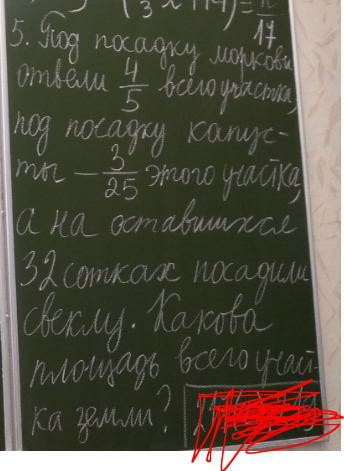 (3х+14)=
17
5. Под посадку моркови
отвели 4/5 всего участка,
под посадку капус-
ты – 3/25 этого участка,
а на оставшихся
32 сотках посадили
свеклу. Какова
площадь всего участ-
ка земли?